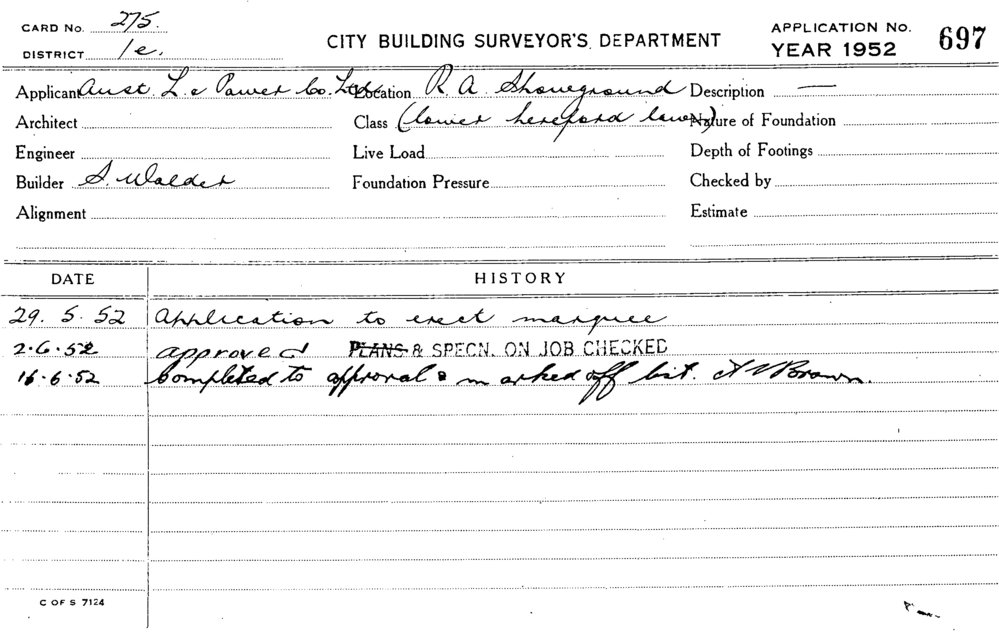 CARD No. 275.
DISTRICT 1e.
CITY BUILDING SURVEYOR'S DEPARTMENT
APPLICATION No. 697
YEAR 1952
Applicant Aust L. & Power Co. Ltd Location R. A. Showground Description —
Architect Class (lower hereford lawn) Nature of Foundation
Engineer Live Load Depth of Footings
Builder S. Walder Foundation Pressure Checked by
Alignment Estimate
DATE HISTORY
29.5.52 Application to erect marquee
2.6.52 approved PLANS & SPECN. ON JOB CHECKED
16.6.52 Completed to approval & marked off list. A V Brown.
C OF S 7124